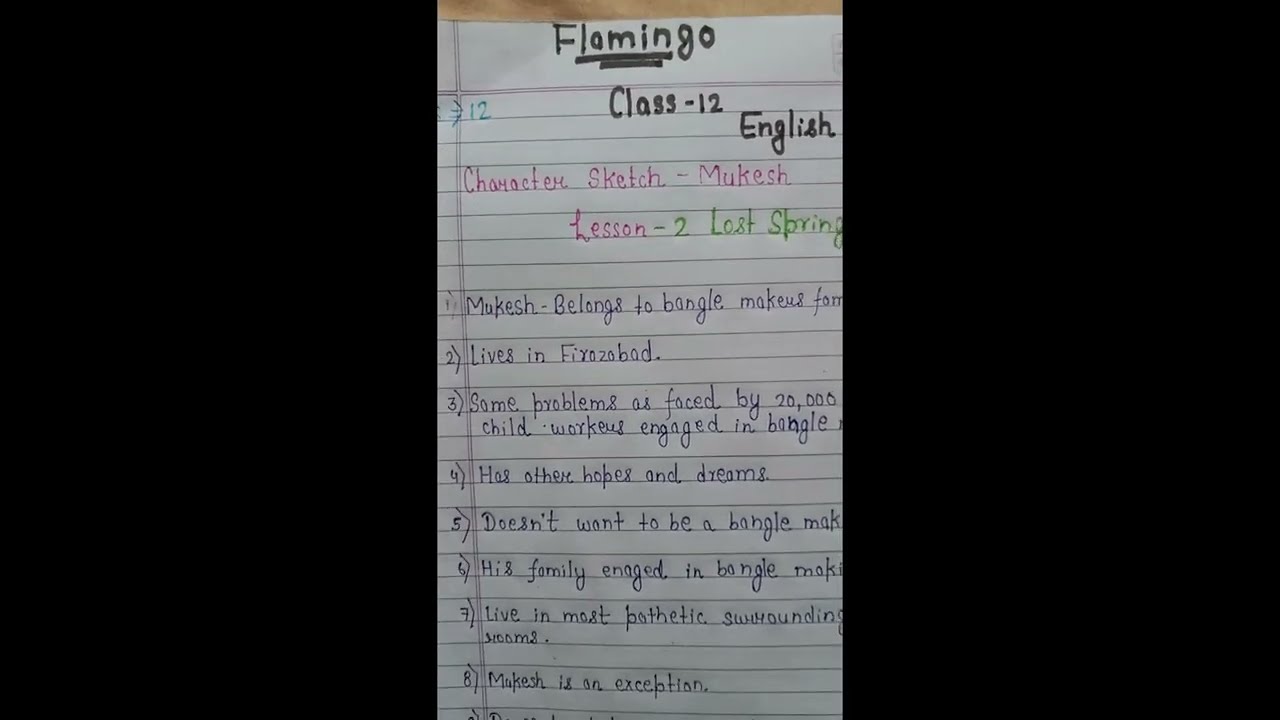 Flamingo
12
Class-12
English
Character Sketch - Mukesh
Lesson-2 Lost Spring
1) Mukesh-Belongs to bangle makers
2) Lives in Firozabad.
3) Same problems as faced by 20,000
child workers engaged in bangle
4) Has other hopes and dreams.
5) Doesn't want to be a bangle mak
6) His family enaged in bangle maki
7) Live in most pathetic surrounding
rooms.
8) Mukesh is an exception.